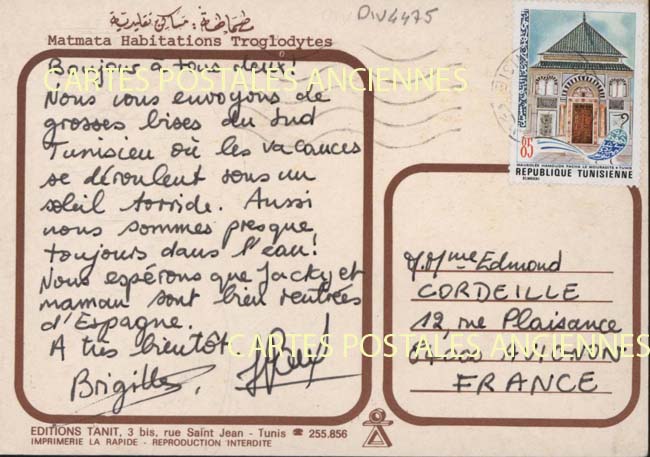 مطماطة : مساكن تقليدية
DIV4475
Matmata Habitations Troglodytes
Bonjour à tous deux!
CARTES POSTALES ANCIENNES
Nous vous envoyons de
grosses bises du Sud
Tunisien où les vacances
se déroulent sous un
soleil torride. Aussi
nous sommes presque
toujours dans l'eau!
Nous espérons que Jacky et
maman sont bien rentrées
d'Espagne.
A très bientôt!
Brigitte,
85
MAUSOLEE HAMOUDA PACHA LE MOURADITE A TUNIS
REPUBLIQUE TUNISIENNE
M.Mme Edmond
CORDEILLE
12, rue Plaisance
CARTES POSTALES ANCIENNES
AVIGNON
FRANCE
EDITIONS TANIT, 3 bis, rue Saint Jean - Tunis ☎ 255.856
IMPRIMERIE LA RAPIDE - REPRODUCTION INTERDITE